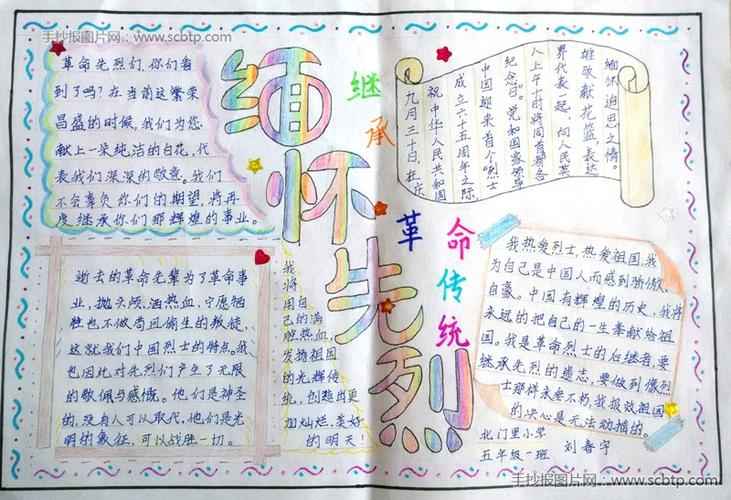 手抄报图片网：www.scbtp.com
革命先烈们,你们看
到了吗?在当前这繁荣
昌盛的时候,我们为您
献上一朵纯洁的白花,代
表我们深深的敬意。我们
不会辜负你们的期望,将再
度继承你们那辉煌的事业。
缅怀先烈
继承
革命传统
九月三十日,在庆
祝中华人民共和国
成立六十五周年之际,
中国迎来首个“烈士
纪念日”。党和国家领导
人上午十时将同首都各
界代表一起,向人民英
雄敬献花篮表达
缅怀追思之情。
逝去的革命先辈为了革命事
业,抛头颅,洒热血,宁愿牺
牲也不做苟延偷生的叛徒,
这就我们中国烈士的特点。我
也因此对先烈们产生了无限
的敬佩与感慨。他们是神圣
的,没有人可以取代。他们是光
明的象征,可以战胜一切。
我
将
用自
己的满
腔热血,
发扬祖国
的光辉传
统,创造出更
加灿烂,美好
的明天!
我热爱烈士,热爱祖国,我
为自己是中国人而感到骄傲,
自豪。中国有辉煌的历史,我将
永远的把自己的一生奉献给祖
国。我是革命烈士的后继者,要
继承先烈的遗志,要做到像烈
士那样永垂不朽,我报效祖国
的决心是无法动摇的
北门里小学
五年级一班 刘春宇
手抄报图片网：www.scbtp.com